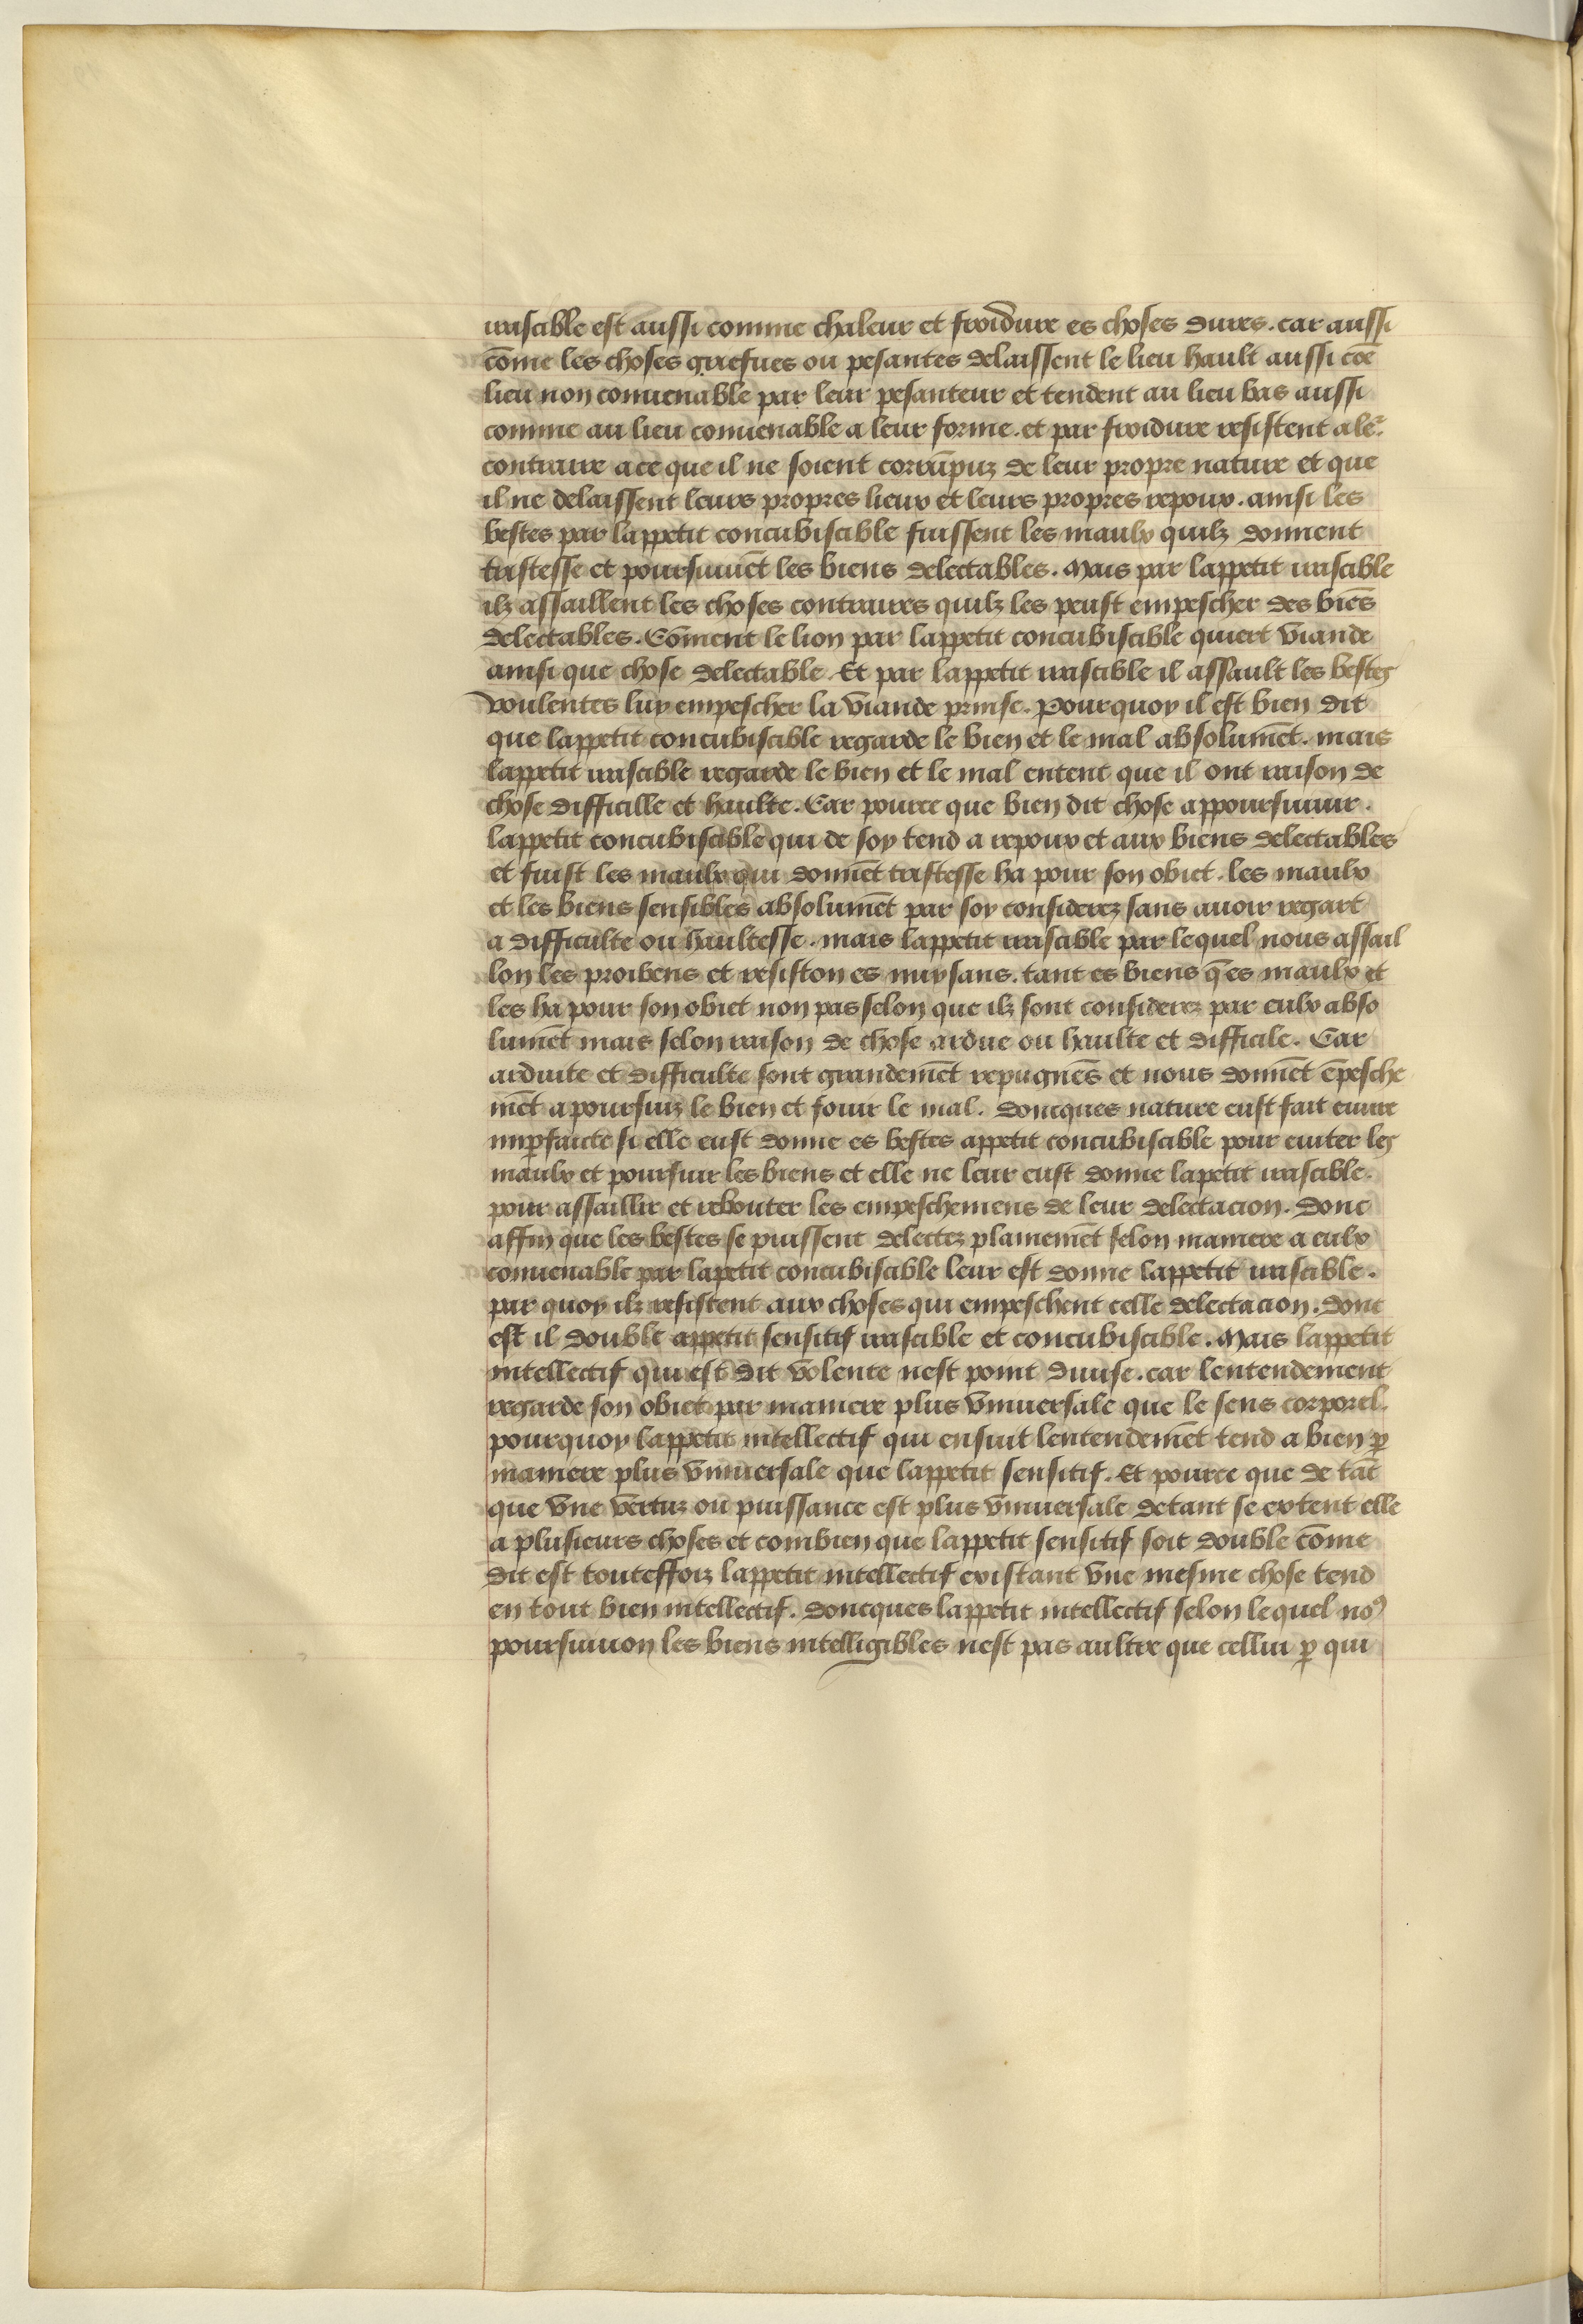 irascible est aussi comme chaleur et froidure es choses dures. car aussi
cōme les choses griefues ou pesantes delaissent le lieu hault aussi cōe
lieu non conuenable par leur pesanteur et tendent au lieu bas aussi
comme au lieu conuenable a leur forme. et par froidure resistent a le͛
contraire a ce que il ne soient corrūpuz de leur propre nature et que
il ne delaissent leurs propres lieux et leurs propres repoux. ainsi les
bestes par lappetit concubiscible fuissent les maulx quilz donnent
tristesse et poursuiuēt les biens delectables. Mais par lappetit irascible
ilz assaillent les choses contraires quilz les peust empescher des biēs
delectables. Cōment le lion par lappetit concubiscible quiert viande
ainsi que chose delectable. Et par lappetit irascible il assault les bestes
voulentes luy empescher la viande prinse. Pourquoy il est bien dit
que lappetit concubiscible regarde le bien et le mal absolumēt. mais
lappetit irascible regarde le bien et le mal entent que il ont raison de
chose difficille et haulte. Car pource que bien dit chose appoursuiuir.
lappetit concubiscible qui de soy tend a repoux et aux biens delectables
et fuist les maulx qui donnēt tristesse ha pour son obiet. les maulx
et les biens sensibles absolumēt par soy considerez sans auoir regart
a difficulte ou haultesse. mais lappetit irascible par lequel nous assail
lon les proibens et resiston es nuysans. tant es biens q̄ es maulx et
les ha pour son obiet non pas selon que ilz sont considerez par eulx abso
lumēt mais selon raison de chose ardue ou haulte et difficile. Car
arduite et difficulte sont grandemēt repugnēs et nous donnēt ēpesche
mēt a poursuiz le bien et fouir le mal. doncques nature eust fait euure
imꝑfaicte si elle eust donne es bestes appetit concubiscible pour euiter les
maulx et poursuir les biens et elle ne leur eust donne lapetit irascible.
pour assaillir et rebouter les empeschemens de leur delectacion. donc
affin que les bestes se puissent delectez plainemēt selon maniere a eulx
conuenable par lapetit concubiscible leur est donne lappetit irascible.
par quoy ilz resistent aux choses qui empeschent celle delectacion. donc
est il double appetit sensitif irascible et concubiscible. Mais lappetit
intellectif qui est dit volente nest point diuise. car lentendement
regarde son obiet par maniere plus vniuersale que le sens corporel.
pourquoy lappetit intellectif qui ensuit lentendemēt tend a bien ꝑ
maniere plus vniuersale que lappetit sensitif. Et pource que de tāt
que vne vertuz ou puissance est plus vniuersale detant se extent elle
a plusieurs choses et combien que lappetit sensitif soit double cōme
dit est touteffoiz lappetit intellectif existant vne mesme chose tend
en tout bien intellectif. doncques lappetit intellectif selon lequel noꝰ
poursuiuon les biens intelligibles nest pas aultre que cellui ꝑ qui